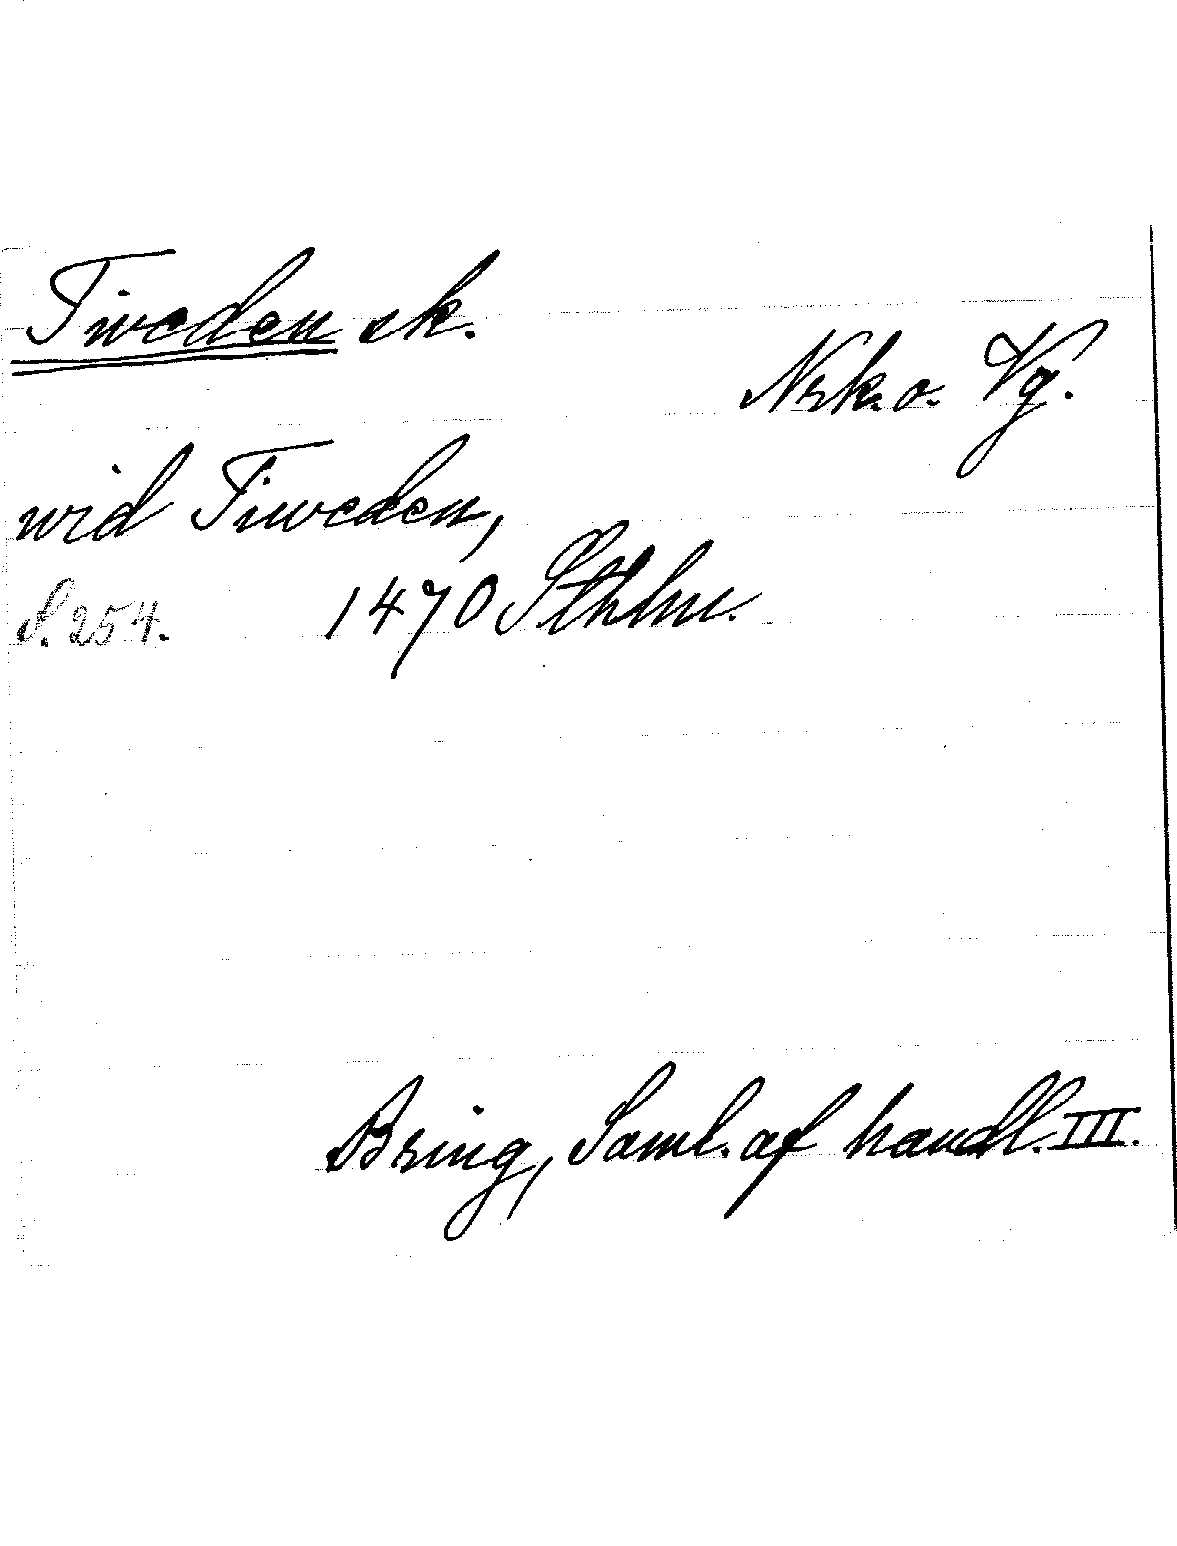 Tiweden sk.
Nrk. o. Vg.
wid Tiweden,
S. 254. 1470 Sthlm.
Bring, Saml. af handl. III.